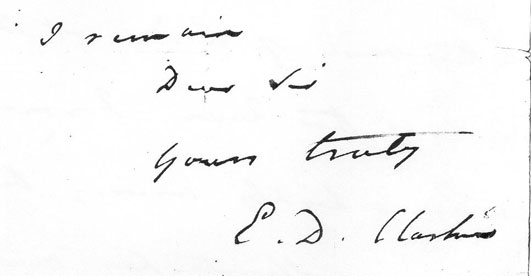 I remain
Dear Sir
yours truly
E. D. Clarke